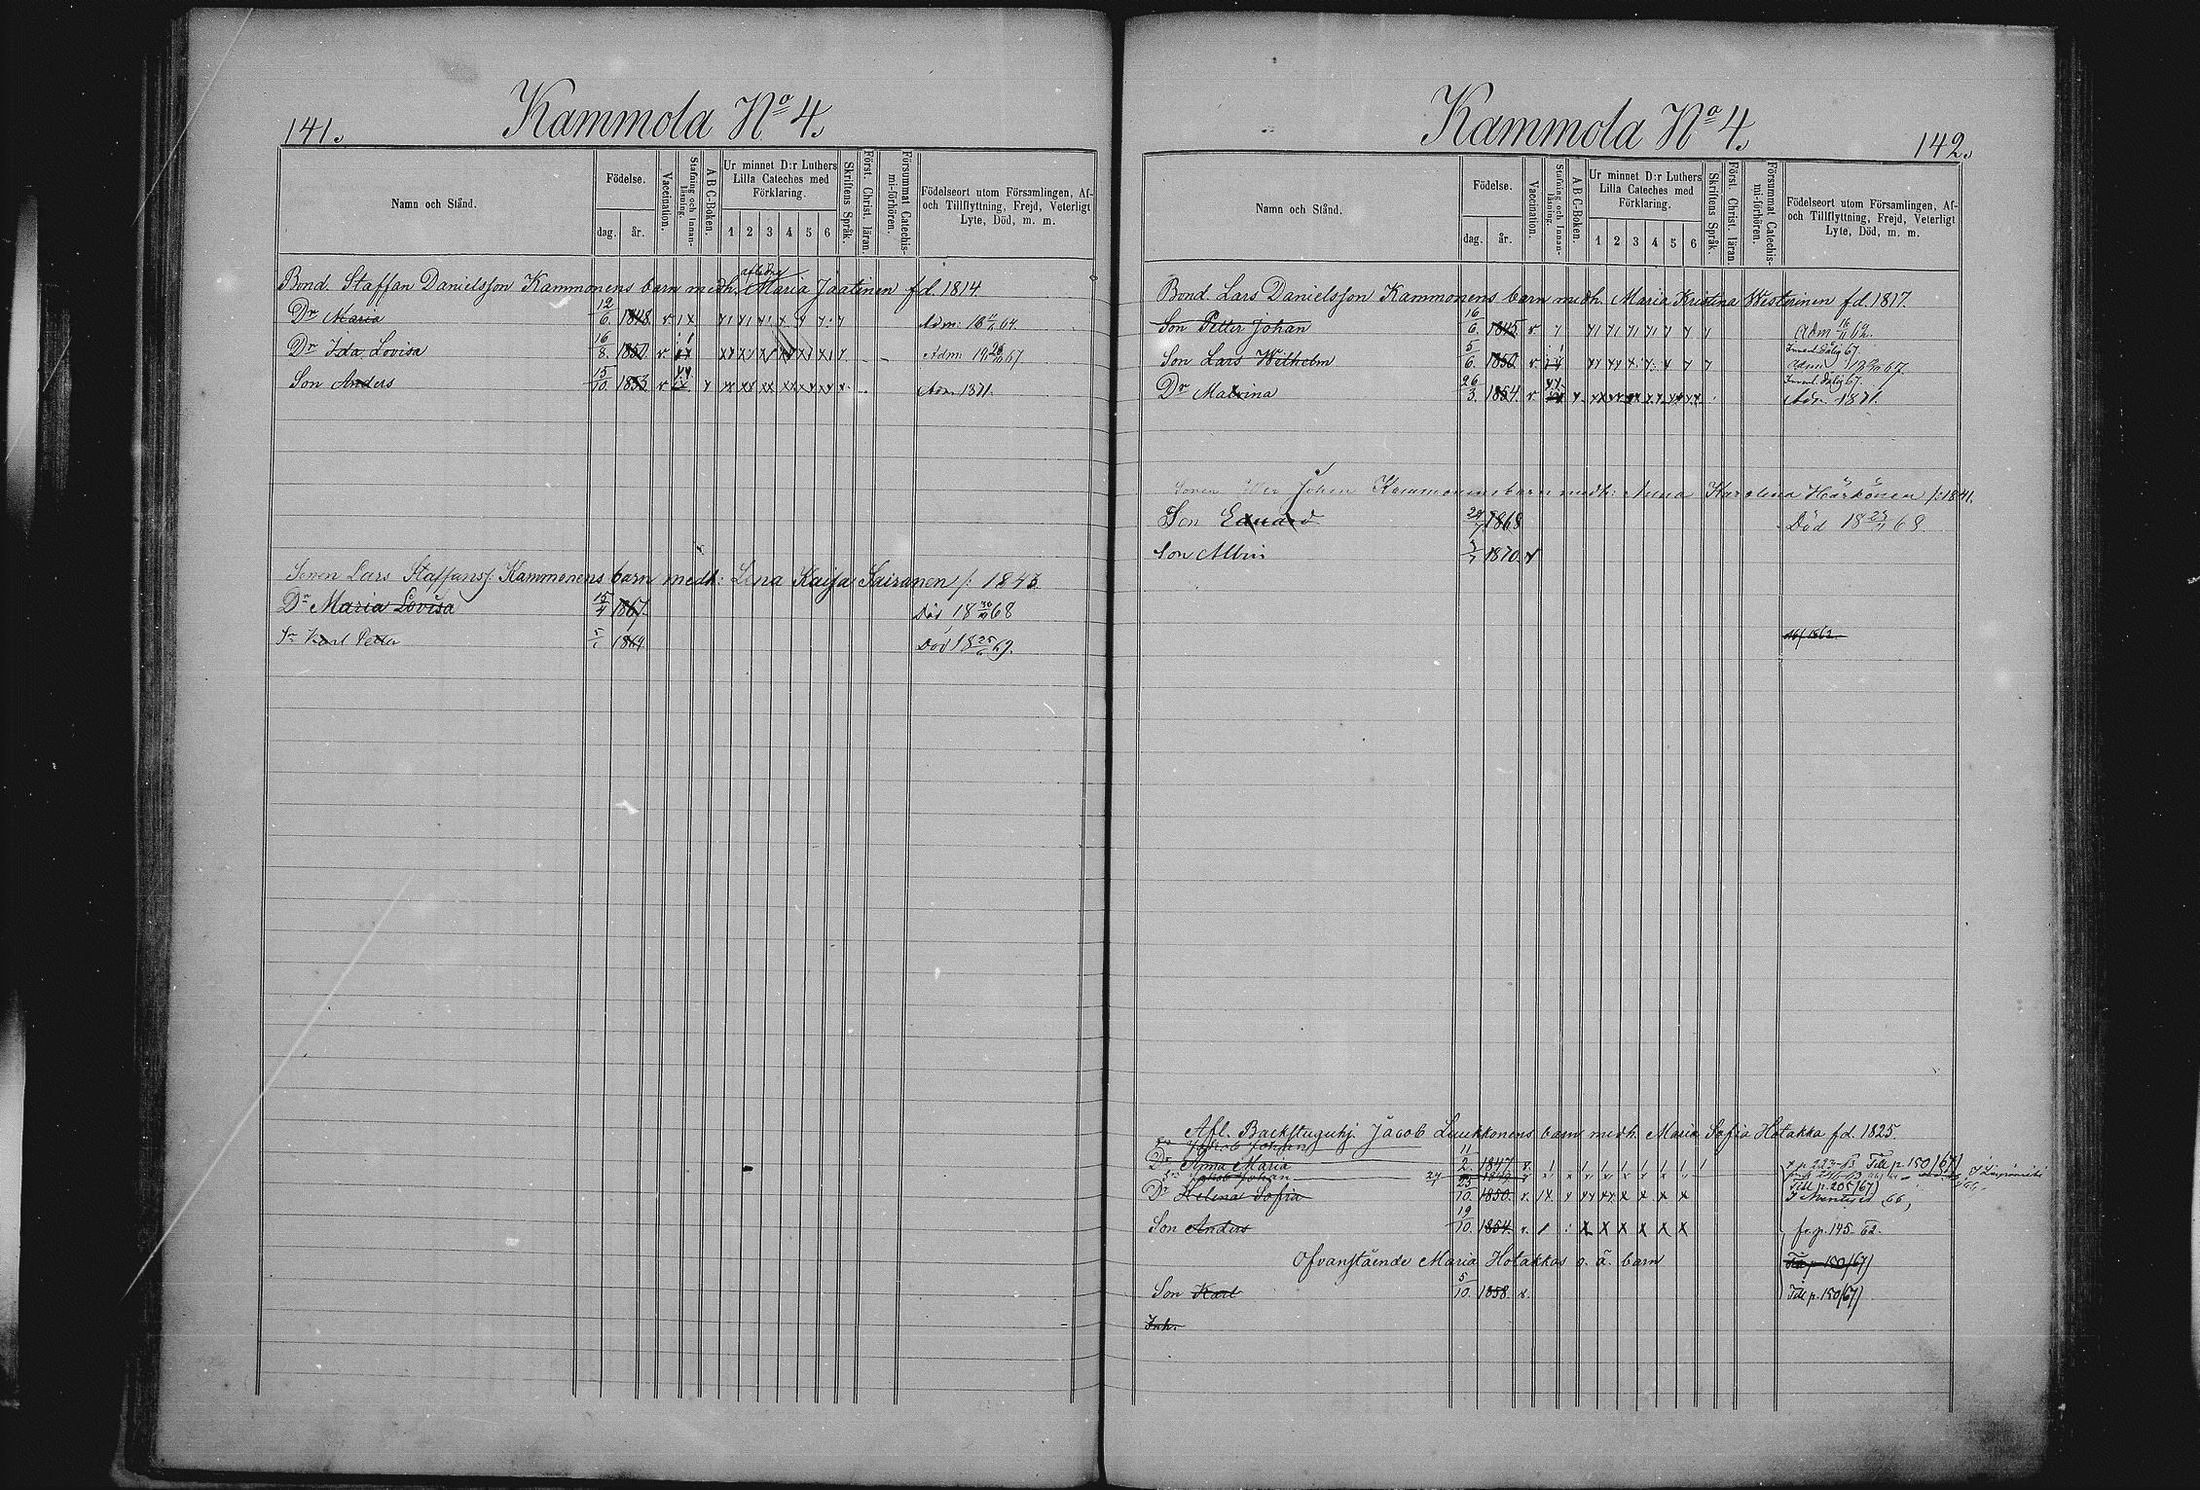 141.
Kammola No 4.
Namn och Stånd.
Födelse.
dag.
år.
Vaccination.
Stafning och Innanläsning.
A B C-Boken.
Ur minnet D:r Luthers Lilla Cateches med Förklaring.
1 2 3 4 5 6
Skriftens Språk.
Först. Christ. läran.
Försummat Catechismi-förhören.
Födelseort utom Församlingen, Af- och Tillflyttning, Frejd, Veterligt Lyte, Död, m. m.
Bond. Staffan Danielsson Kammonens barn medh. afledne Maria Jaatinen fd. 1814.
Dr Maria 12/6. 1848. v Adm: 64.
Dr Ida Lovisa 16/8. 1850. v Adm: 67
Son Anders 15/10. 1853 v Adm. 1871.
Sonen Lars Staffanss. Kammonens barn medh: Lena Kaisa Sairanen f: 1843
Dr Maria Lovisa 15/4 1867. Död 18 68
Sn Karl Petter 1869. Död 18 25/6 69.
Kammola No 4.
142.
Namn och Stånd.
Födelse.
dag.
år.
Vaccination.
Stafning och Innanläsning.
A B C-Boken.
Ur minnet D:r Luthers Lilla Cateches med Förklaring.
1 2 3 4 5 6
Skriftens Språk.
Först. Christ. läran.
Försummat Catechismi-förhören.
Födelseort utom Församlingen, Af- och Tillflyttning, Frejd, Veterligt Lyte, Död, m. m.
Bond. Lars Danielsson Kammonens barn medh. Maria Kristina Westerinen fd. 1817.
Son Petter Johan 16/6. 1845 v Adm 62.
Son Lars Wilhelm 5/6. 1850 v Adm 67.
Dr Maxina 26/3. 1854. v Adm 1871.
Sonen Johan Kammonens barn medh: Anna Karolina Härkönen f: 1841.
Son Eduard 1868 Död 18 68
Son Albin 1870. v
Afl. Backstuguhj. Jacob Luukkonens barn medh. Maria Sofia Hotakka fd. 1825.
Jakob Johan
Dr Anna Maria 11/2. 1847. v. Till p. 150/67)
Jakob Johan 1849
Till p. 205/67)
Dr Helena Sofia 25/10. 1850. v. 66,
Son Anders 19/10. 1854. v. fr. p. 145. 62.
Ofvanstående Maria Hotakkas o. ä. barn Till p. 150/67)
Son Karl 5/10. 1858. v. Till p. 150/67)
Inh.